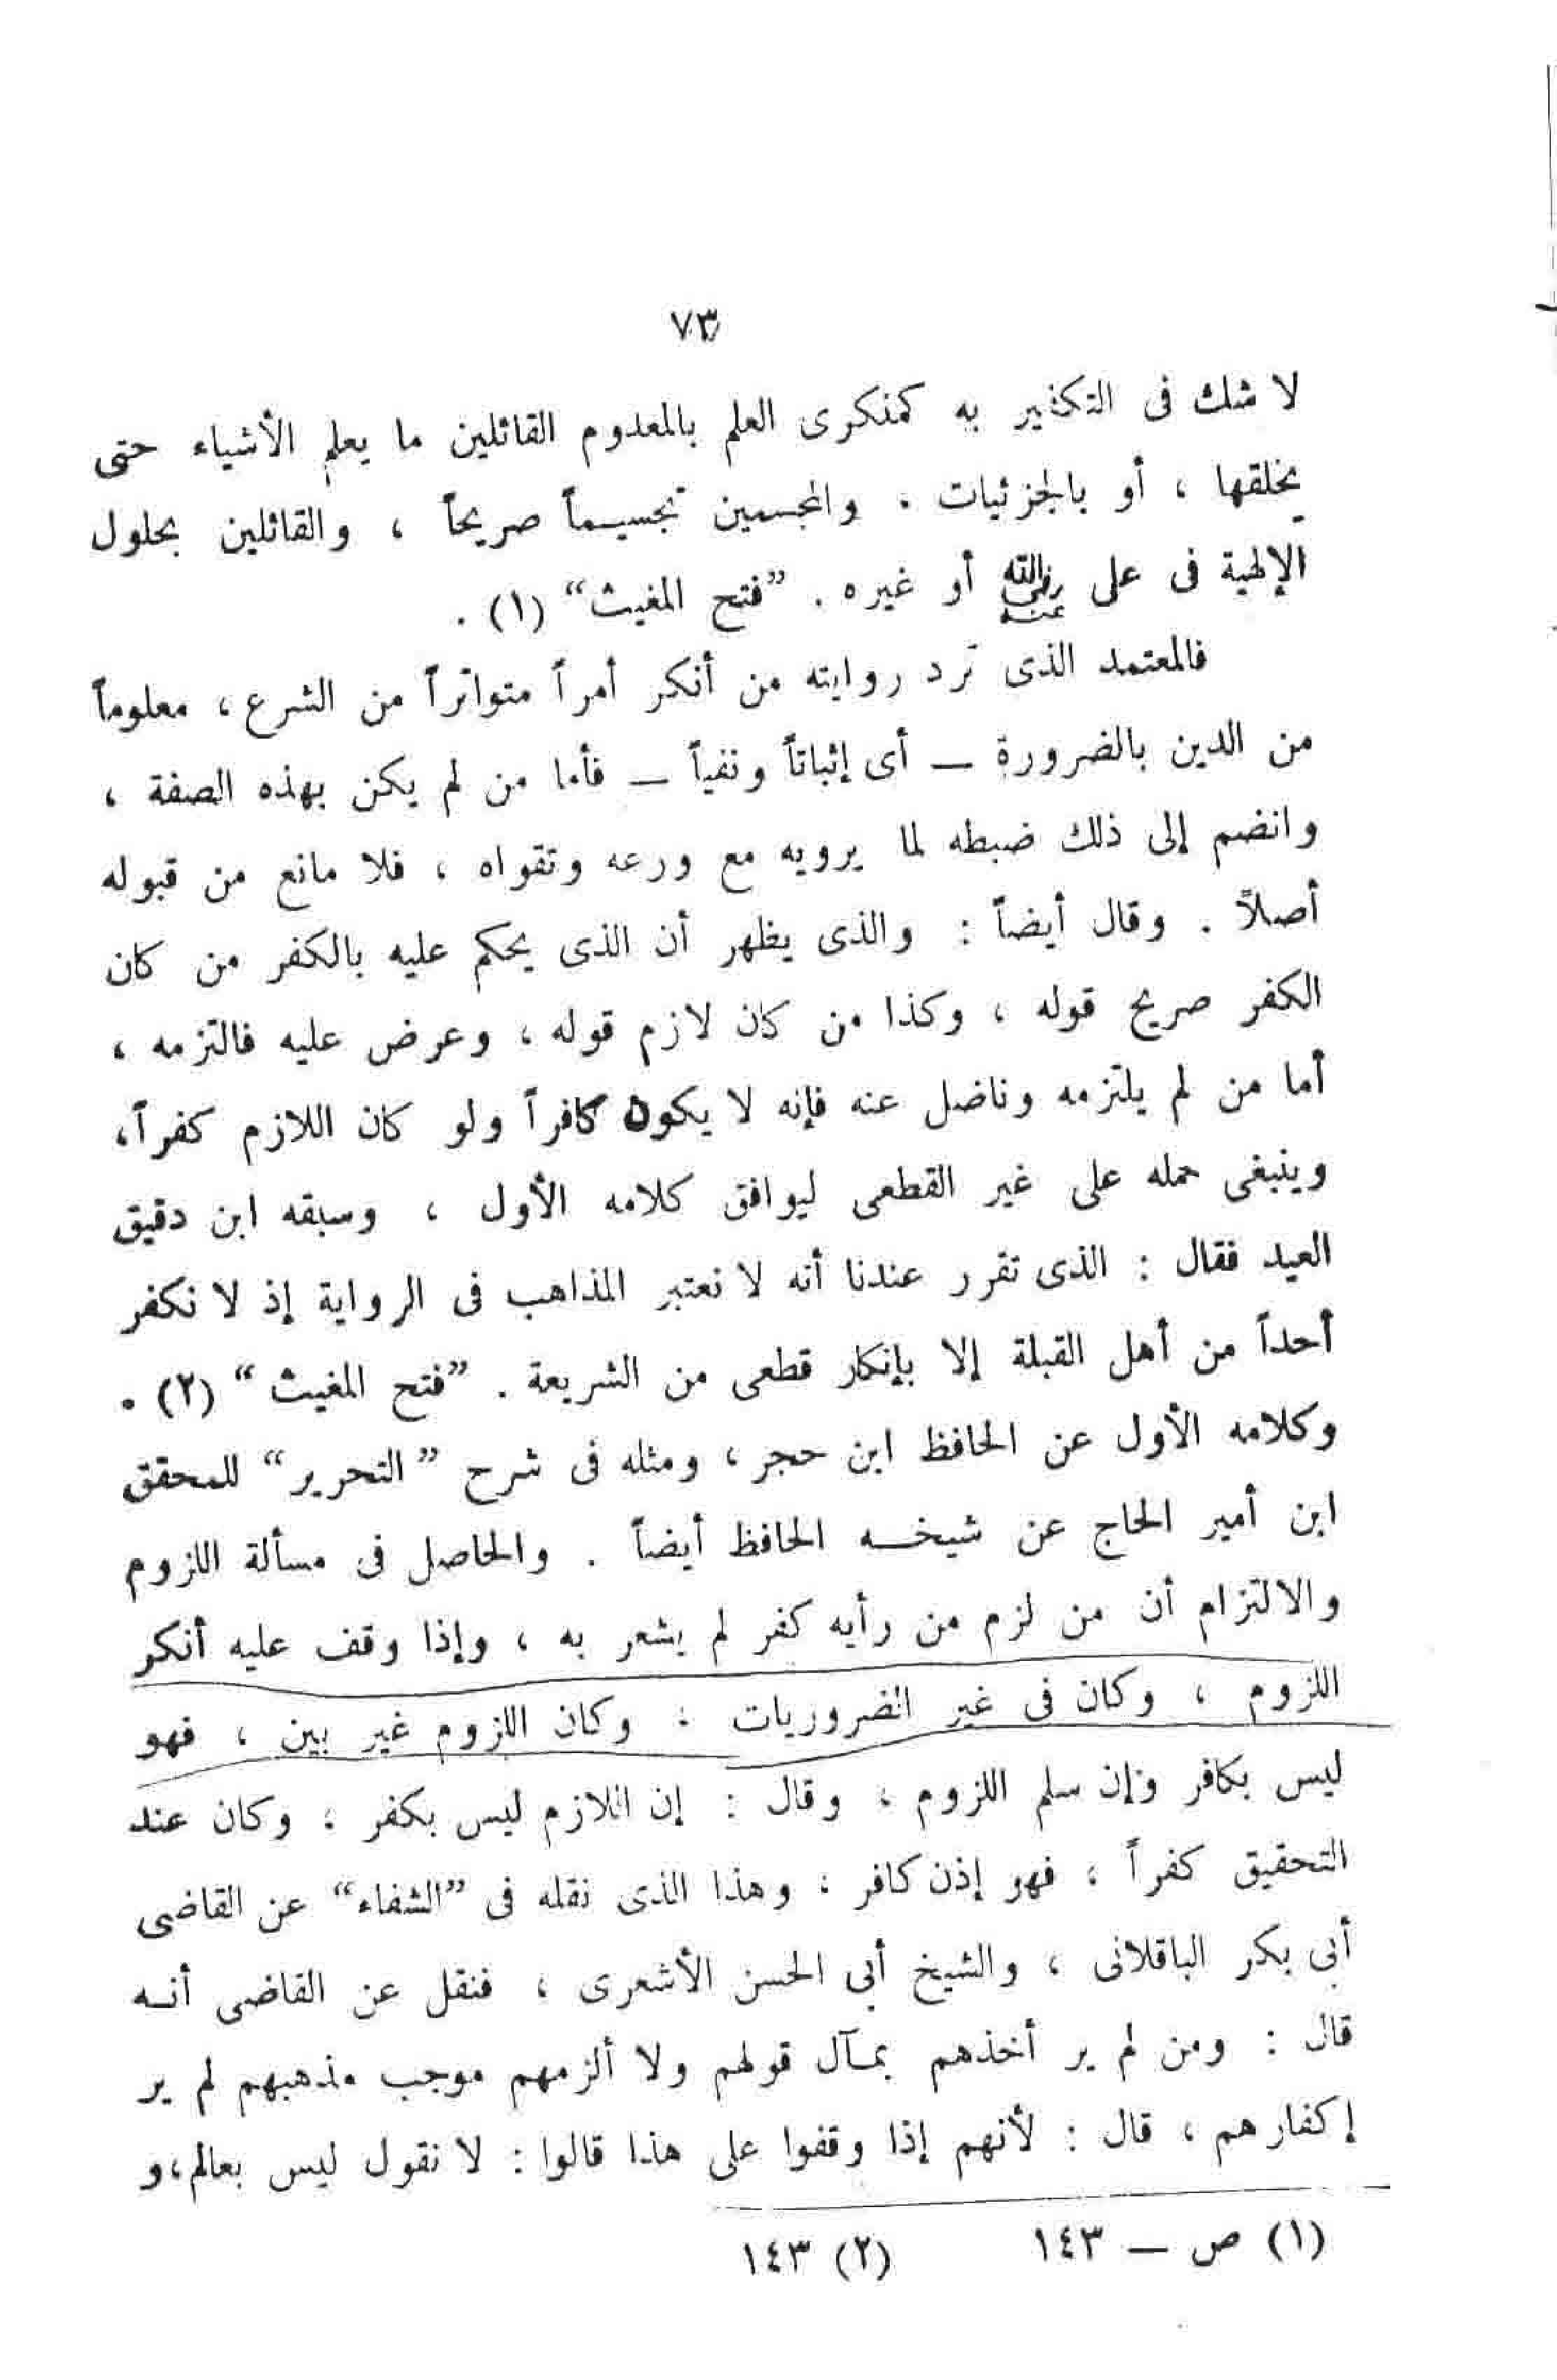 ٧٣
لا شك فى التكفير به كمنكرى العلم بالمعدوم القائلين ما يعلم الأشياء حتى
يخلقها ، أو بالجزئيات . والمجسمين تجسيماً صريحاً ، والقائلين بحلول
الإلهية فى على رضى الله عنه أو غيره . ”فتح المغيث“ (١) .
فالمعتمد الذى ترد روايته من أنكر أمراً متواتراً من الشرع ، معلوماً
من الدين بالضرورة — أى إثباتاً ونفياً — فأما من لم يكن بهذه الصفة ،
وانضم إلى ذلك ضبطه لما يرويه مع ورعه وتقواه ، فلا مانع من قبوله
أصلاً . وقال أيضاً : والذى يظهر أن الذى يحكم عليه بالكفر من كان
الكفر صريح قوله ، وكذا من كان لازم قوله ، وعرض عليه فالتزمه ،
أما من لم يلتزمه وناضل عنه فإنه لا يكون كافراً ولو كان اللازم كفراً ،
وينبغى حمله على غير القطعى ليوافق كلامه الأول ، وسبقه ابن دقيق
العيد فقال : الذى تقرر عندنا أنه لا نعتبر المذاهب فى الرواية إذ لا نكفر
أحداً من أهل القبلة إلا بإنكار قطعى من الشريعة . ”فتح المغيث“ (٢) .
وكلامه الأول عن الحافظ ابن حجر ، ومثله فى شرح ”التحرير“ للمحقق
ابن أمير الحاج عن شيخه الحافظ أيضاً . والحاصل فى مسألة اللزوم
والالتزام أن من لزم من رأيه كفر لم يشعر به ، وإذا وقف عليه أنكر
اللزوم ، وكان فى غير الضروريات ، وكان اللزوم غير بين ، فهو
ليس بكافر وإن سلم اللزوم ، وقال : إن اللازم ليس بكفر ، وكان عند
التحقيق كفراً ، فهو إذن كافر ، وهذا الذى نقله فى ”الشفاء“ عن القاضى
أبى بكر الباقلانى ، والشيخ أبى الحسن الأشعرى ، فنقل عن القاضى أنه
قال : ومن لم ير أخذهم بمآل قولهم ولا ألزمهم موجب مذهبهم لم ير
إكفارهم ، قال : لأنهم إذا وقفوا على هذا قالوا : لا نقول ليس بعالم ، و
(١) ص — ١٤٣ (٢) ١٤٣